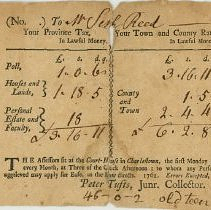 (No. ) To Mr Seth Reed
Your Province Tax, Your Town and County Ra
In Lawful Money. In Lawful Money.
£. s. d. £. s. d.
Poll, 1..0..6 3.16.11
Houses and Lands, 1.18 County and Town
Personal Estate and Faculty, 18
£3.16.11 £6.2.8
THE Assessors sit at the Court-House in Charlestown, the first Monday
every Month, at Three of the Clock Afternoon : to whom any Person
aggrieved may apply for Ease, in the 1762. Errors Excepted,
Peter Tufts, Junr. Collector.
46-0-2 old ten